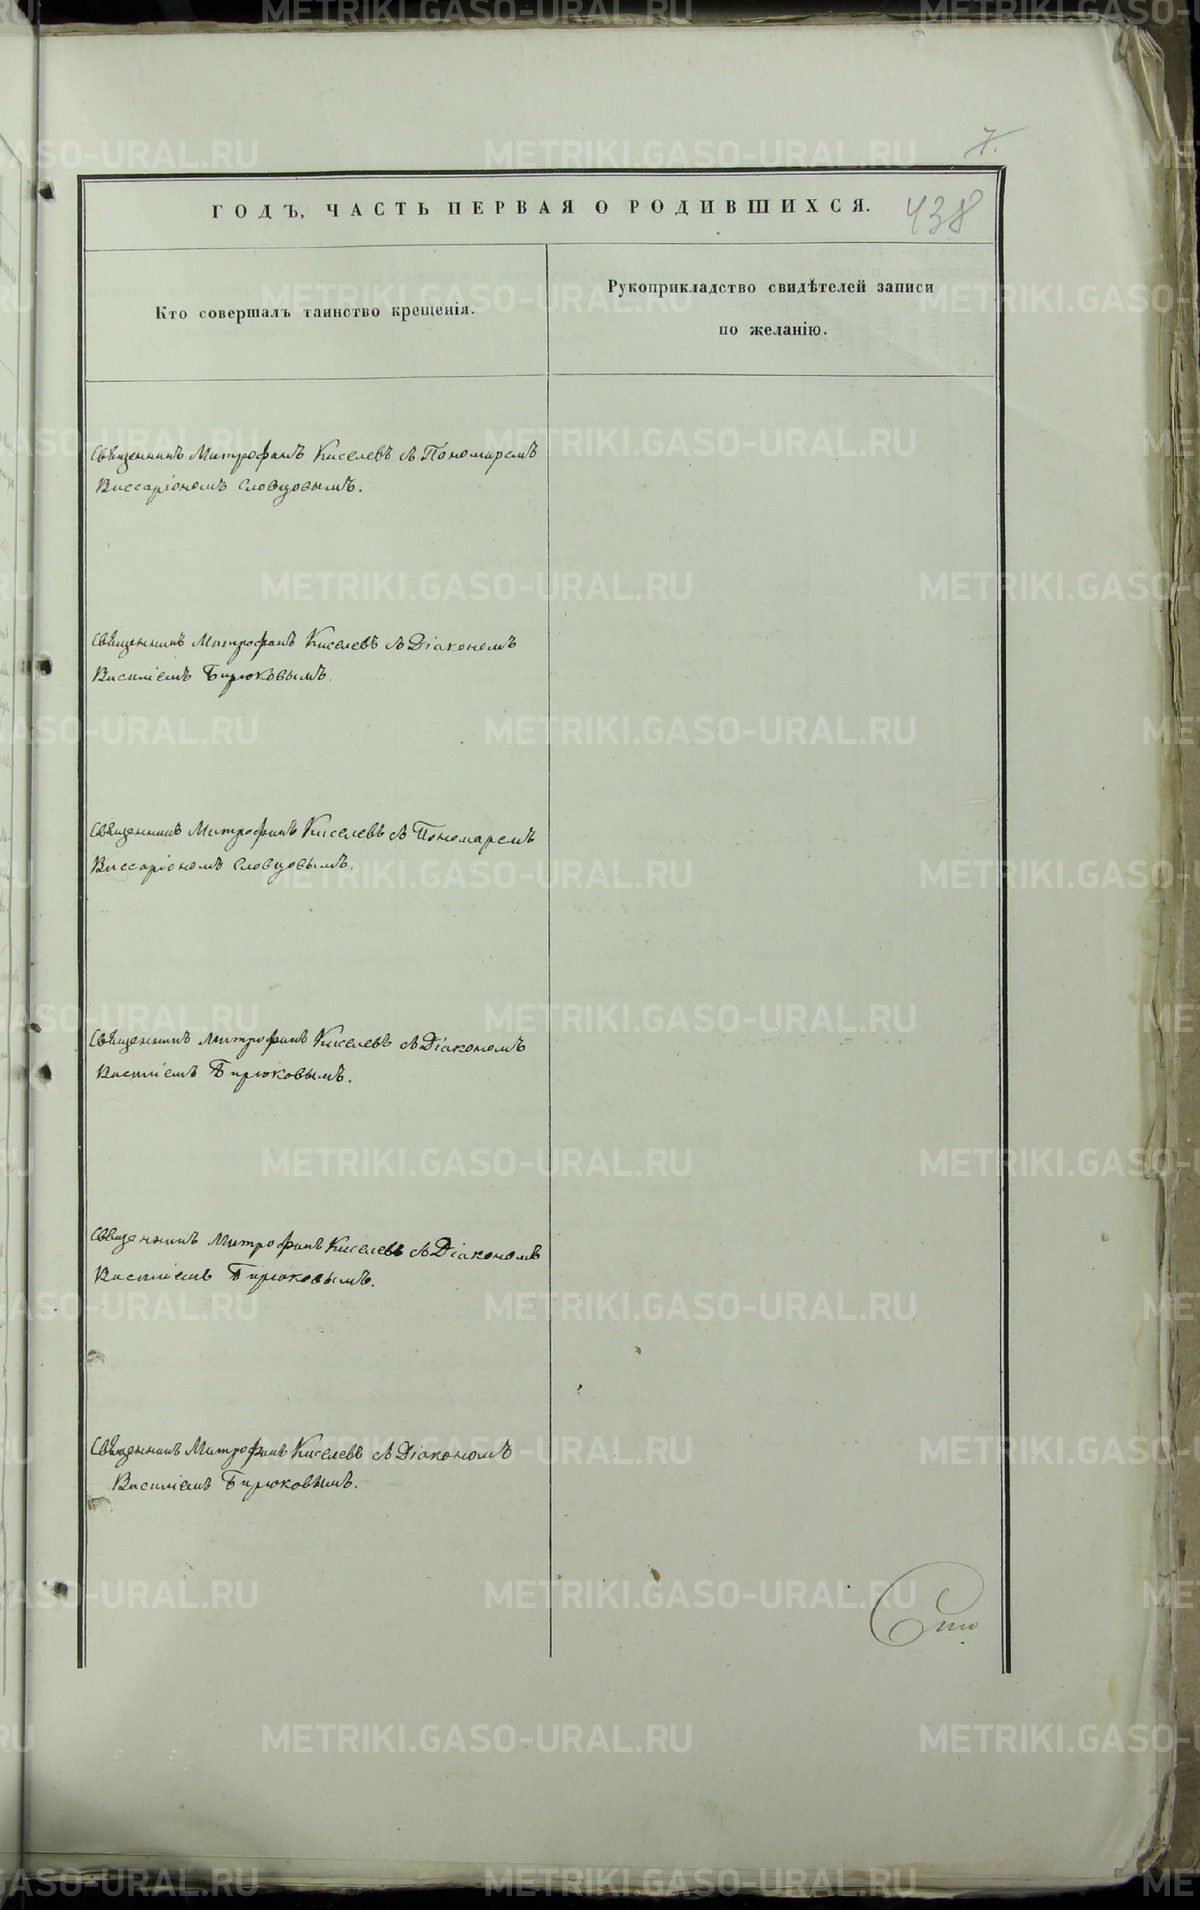 7.
ГОДЪ, ЧАСТЬ ПЕРВАЯ О РОДИВШИХСЯ.
438
Кто совершалъ таинство крещенія.
Рукоприкладство свидѣтелей записи
по желанію.
Священникъ Митрофанъ Киселевъ съ Пономаремъ
Виссаріономъ Словцовымъ.
Священникъ Митрофанъ Киселевъ съ Діакономъ
Василіемъ Бирюковымъ.
Священникъ Митрофанъ Киселевъ съ Пономаремъ
Виссаріономъ Словцовымъ.
Священникъ Митрофанъ Киселевъ съ Діакономъ
Василіемъ Бирюковымъ.
Священникъ Митрофанъ Киселевъ съ Діакономъ
Василіемъ Бирюковымъ.
Священникъ Митрофанъ Киселевъ съ Діакономъ
Василіемъ Бирюковымъ.
METRIKI.GASO-URAL.RU